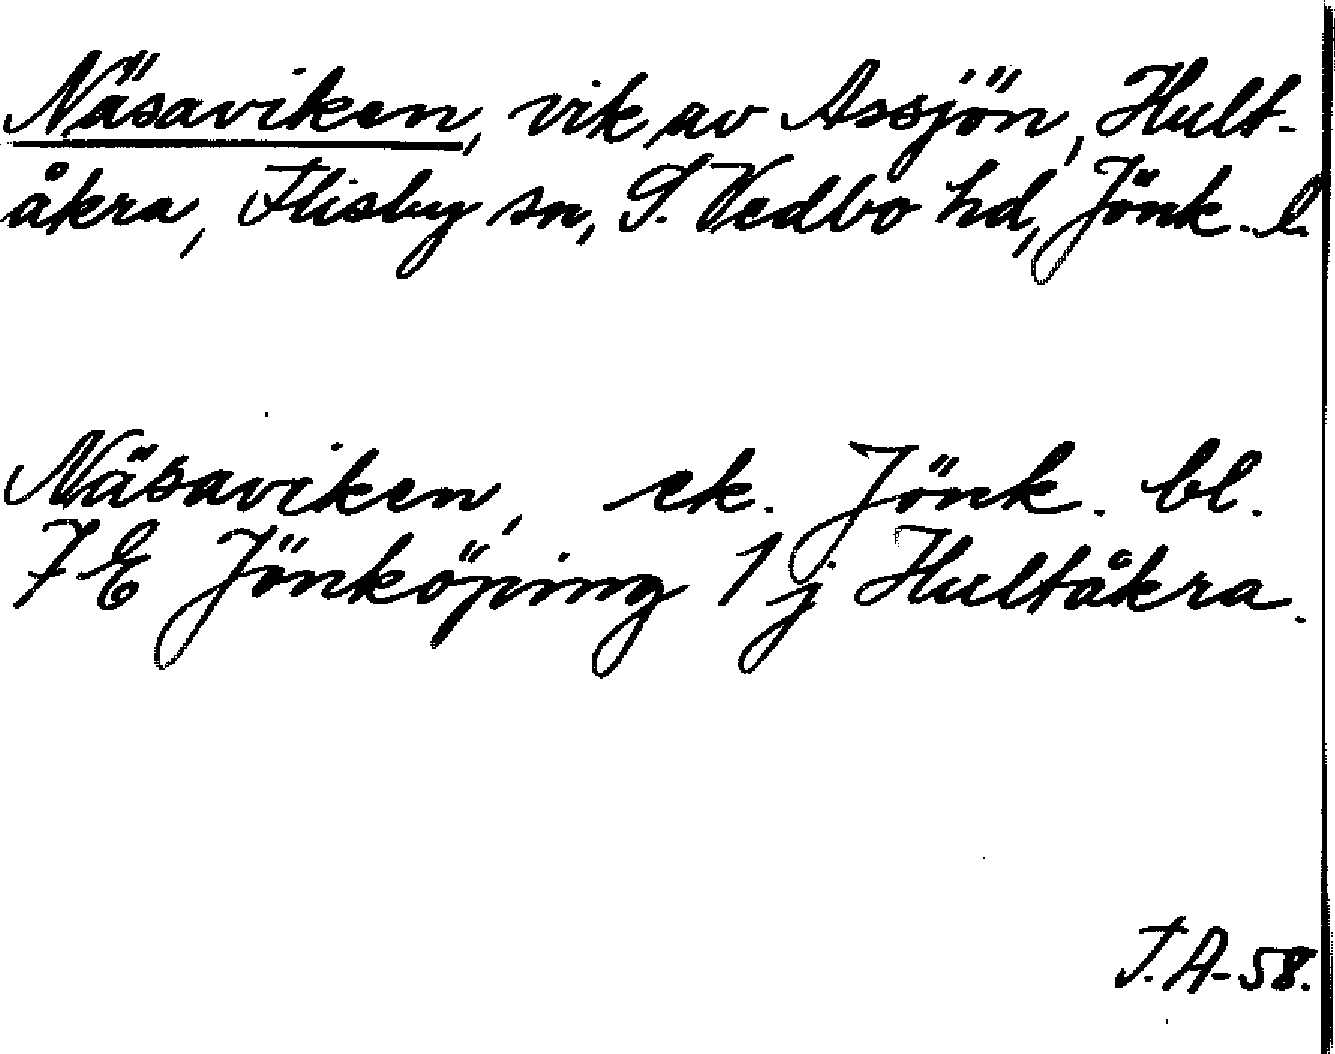 Näsaviken, vik av Assjön, Hult-
åkra, Flisby sn, S. Vedbo hd, Jönk. l.
Näsaviken, ek. Jönk. bl.
7 E Jönköping 1 j Hultåkra.
J. A-58.